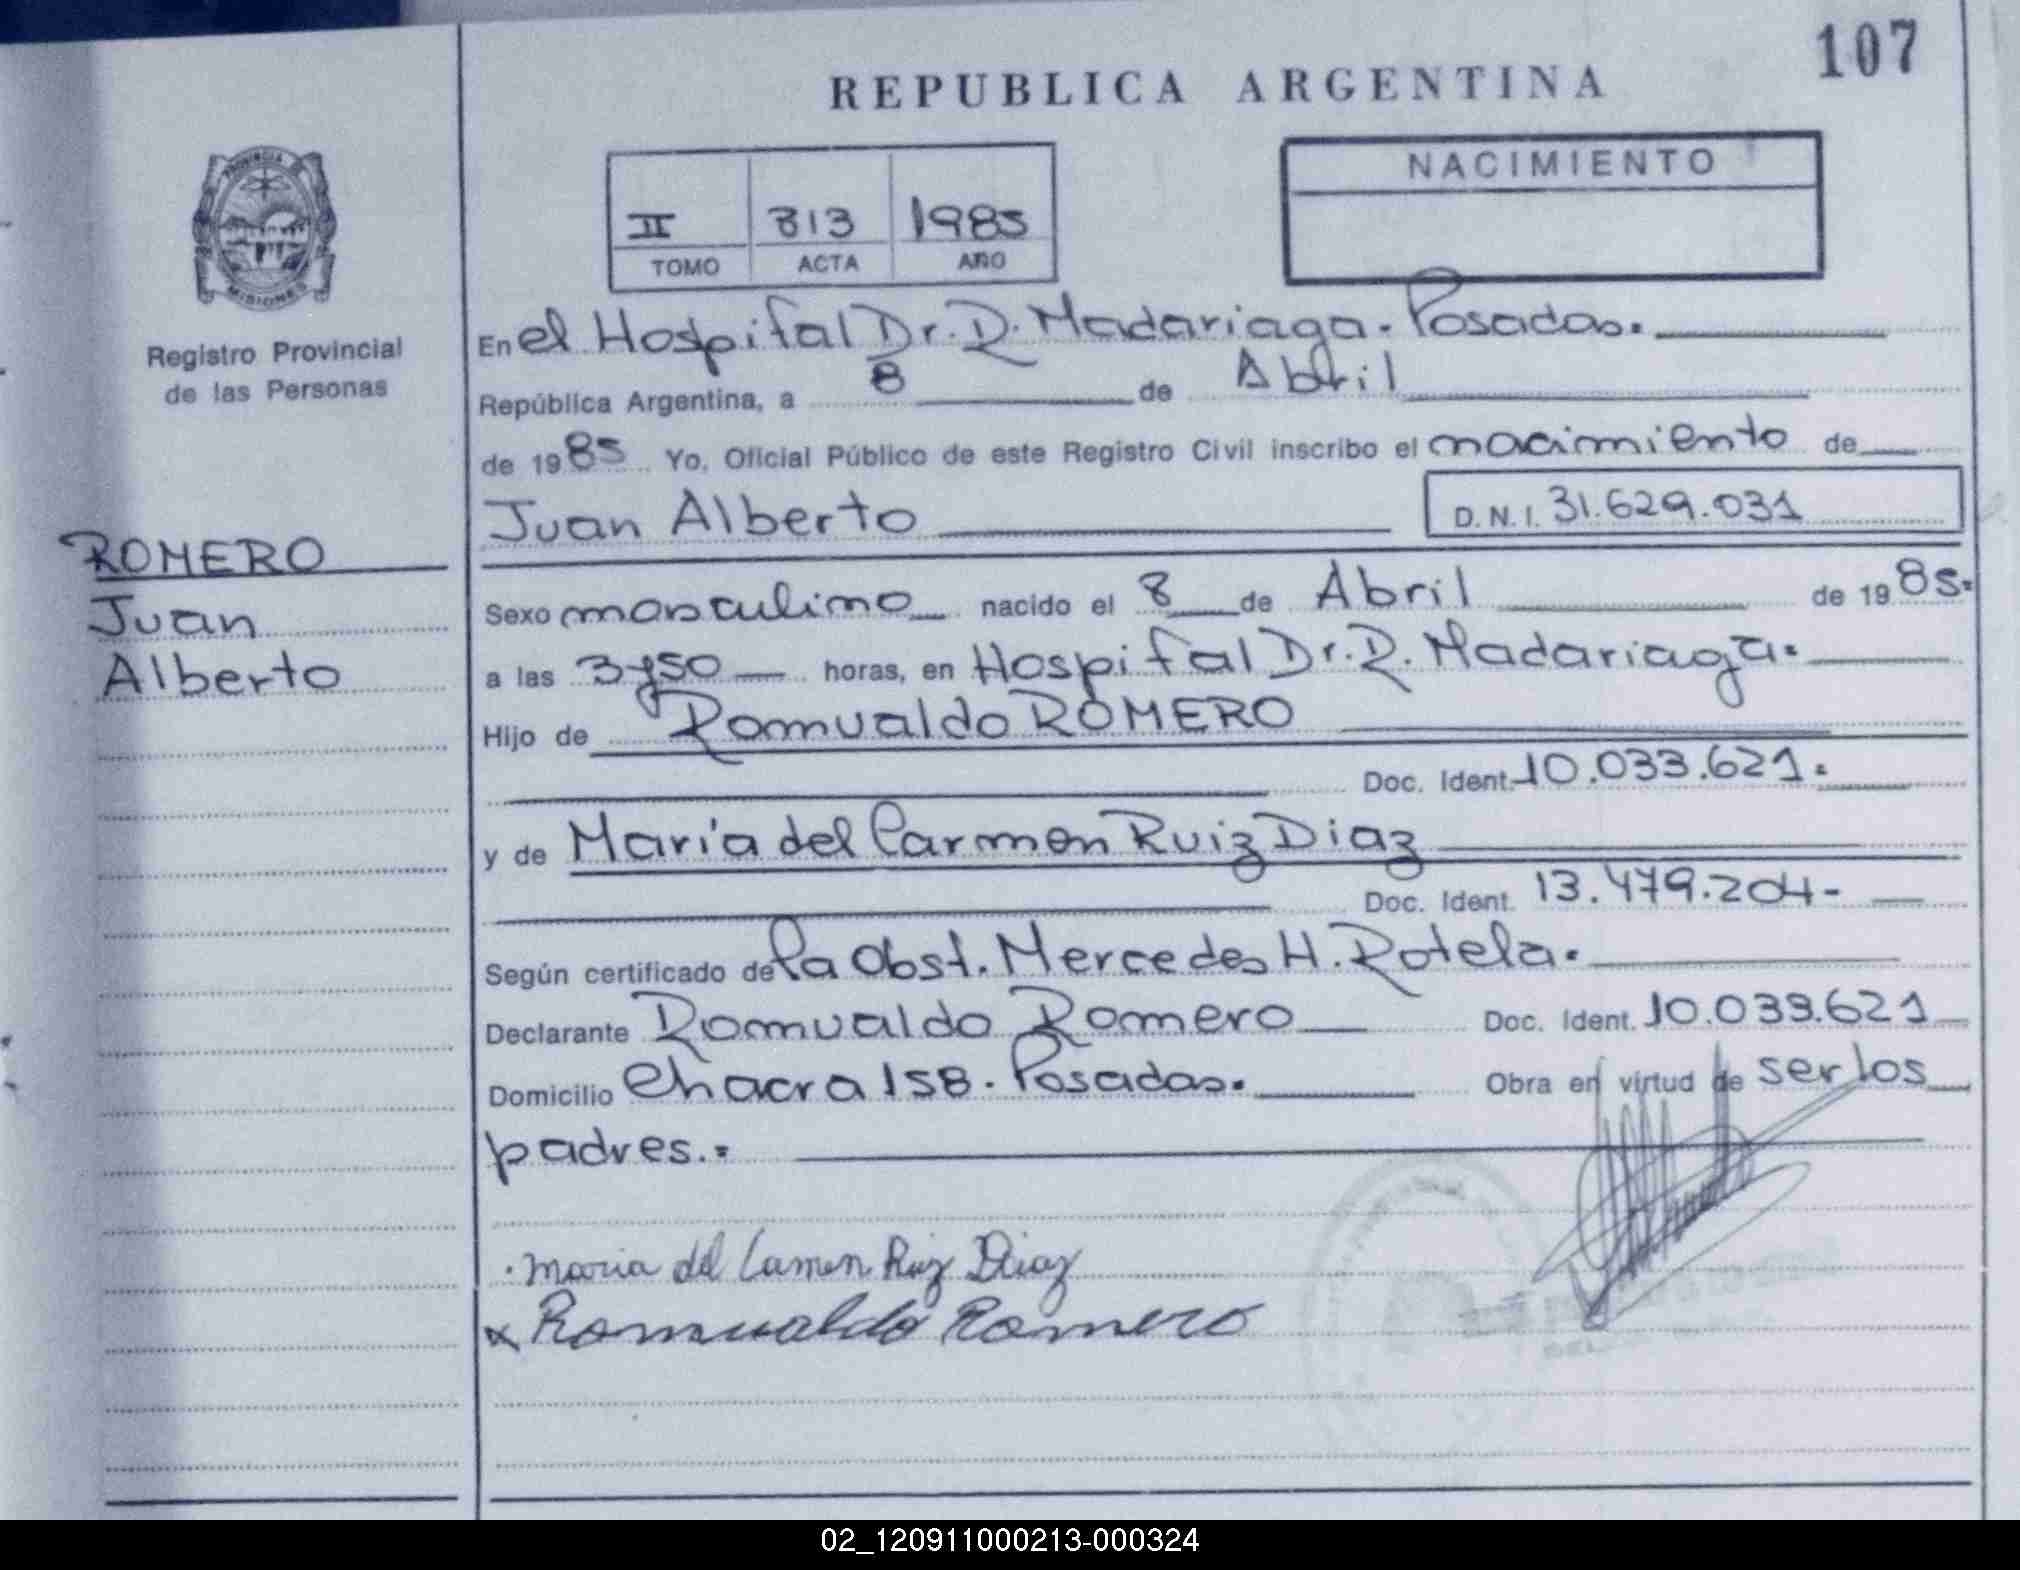 107
REPUBLICA ARGENTINA
PROVINCIA DE
MISIONES
Registro Provincial
de las Personas
II 313 1985
TOMO ACTA AÑO
NACIMIENTO
En el Hospital Dr. R. Madariaga. Posadas.
República Argentina, a 8 de Abril
de 1985 Yo, Oficial Público de este Registro Civil inscribo el nacimiento de
Juan Alberto D.N.I. 31.629.031
ROMERO
Juan
Alberto
Sexo masculino nacido el 8 de Abril de 1985.
a las 3y50 horas, en Hospital Dr. R. Madariaga.
Hijo de Romualdo ROMERO
Doc. Ident. 10.033.621.
y de María del Carmen Ruiz Diaz
Doc. Ident. 13.479.204-
Según certificado de la Obst. Mercedes H. Rotela.
Declarante Romualdo Romero Doc. Ident. 10.033.621
Domicilio Chacra 158. Posadas. Obra en virtud de ser los
padres.
Maria del Carmen Ruiz Diaz
x Romualdo Romero
02_120911000213-000324